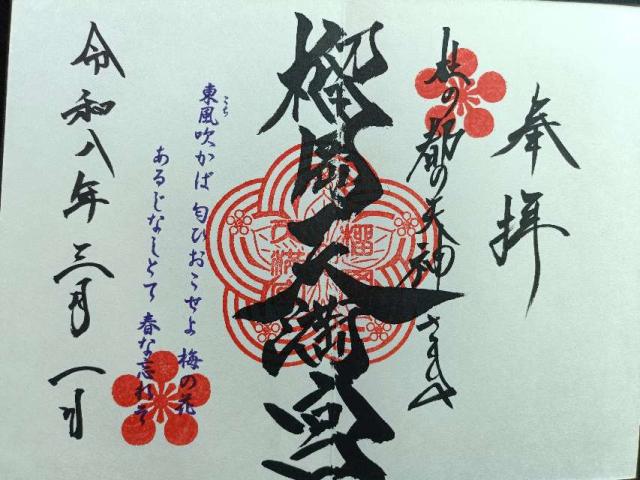 奉拝
杜の都の天神さま
榴岡天満宮
東風吹かば 匂ひおこせよ 梅の花
こち
あるじなしとて 春な忘れそ
令和八年三月一日